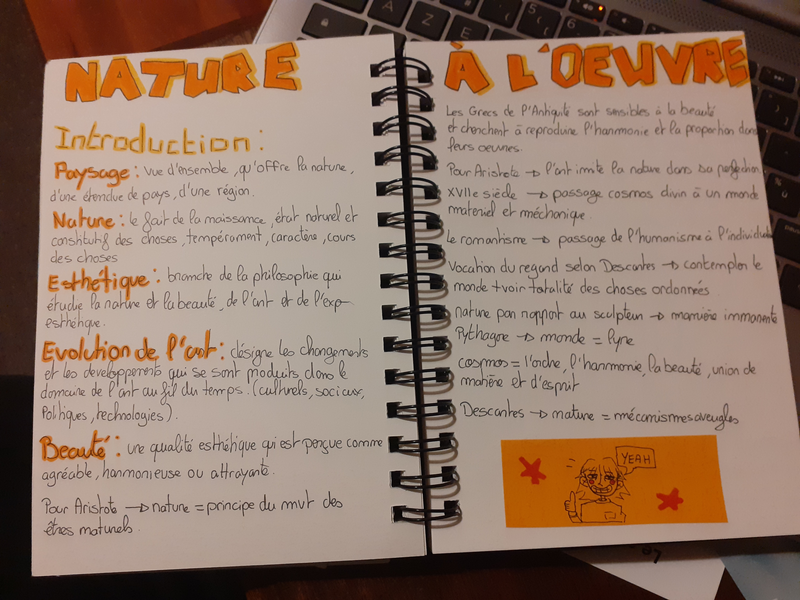 NATURE
Introduction :
Paysage : vue d'ensemble, qu'offre la nature,
d'une étendue de pays, d'une région.
Nature : le fait de la naissance, état naturel et
constitutif des choses, tempérament, caractère, cours
des choses
Esthétique : branche de la philosophie qui
étudie la nature et la beauté, de l'art et de l'exp-
esthétique.
Evolution de l'art : désigne les changements
et les developpements qui se sont produits dans le
domaine de l'art au fil du temps. (culturels, sociaux,
Politiques, technologies).
Beauté : une qualité esthétique qui est perçue comme
agréable, harmonieuse ou attrayante.
Pour Aristote → nature = principe du mvt des
êtres naturels.
À L'OEUVRE
Les Grecs de l'Antiquité sont sensibles à la beauté
et cherchent à reproduire l'harmonie et la proportion dans
leurs oeuvres.
Pour Aristote → l'art imite la nature dans sa perfection
XVIIe siècle → passage cosmos divin à un monde
materiel et méchanique.
Le romantisme → passage de l'humanisme à l'individu
Vocation du regard selon Descartes → contempler le
monde + voir totalité des choses ordonnées.
nature par rapport au sculpteur → manière immanente
Pythagore → monde = lyre
cosmos = l'ordre, l'harmonie, la beauté, union de
matière et d'esprit
Descartes → nature = mécanismes aveugles
YEAH
A
Z
E